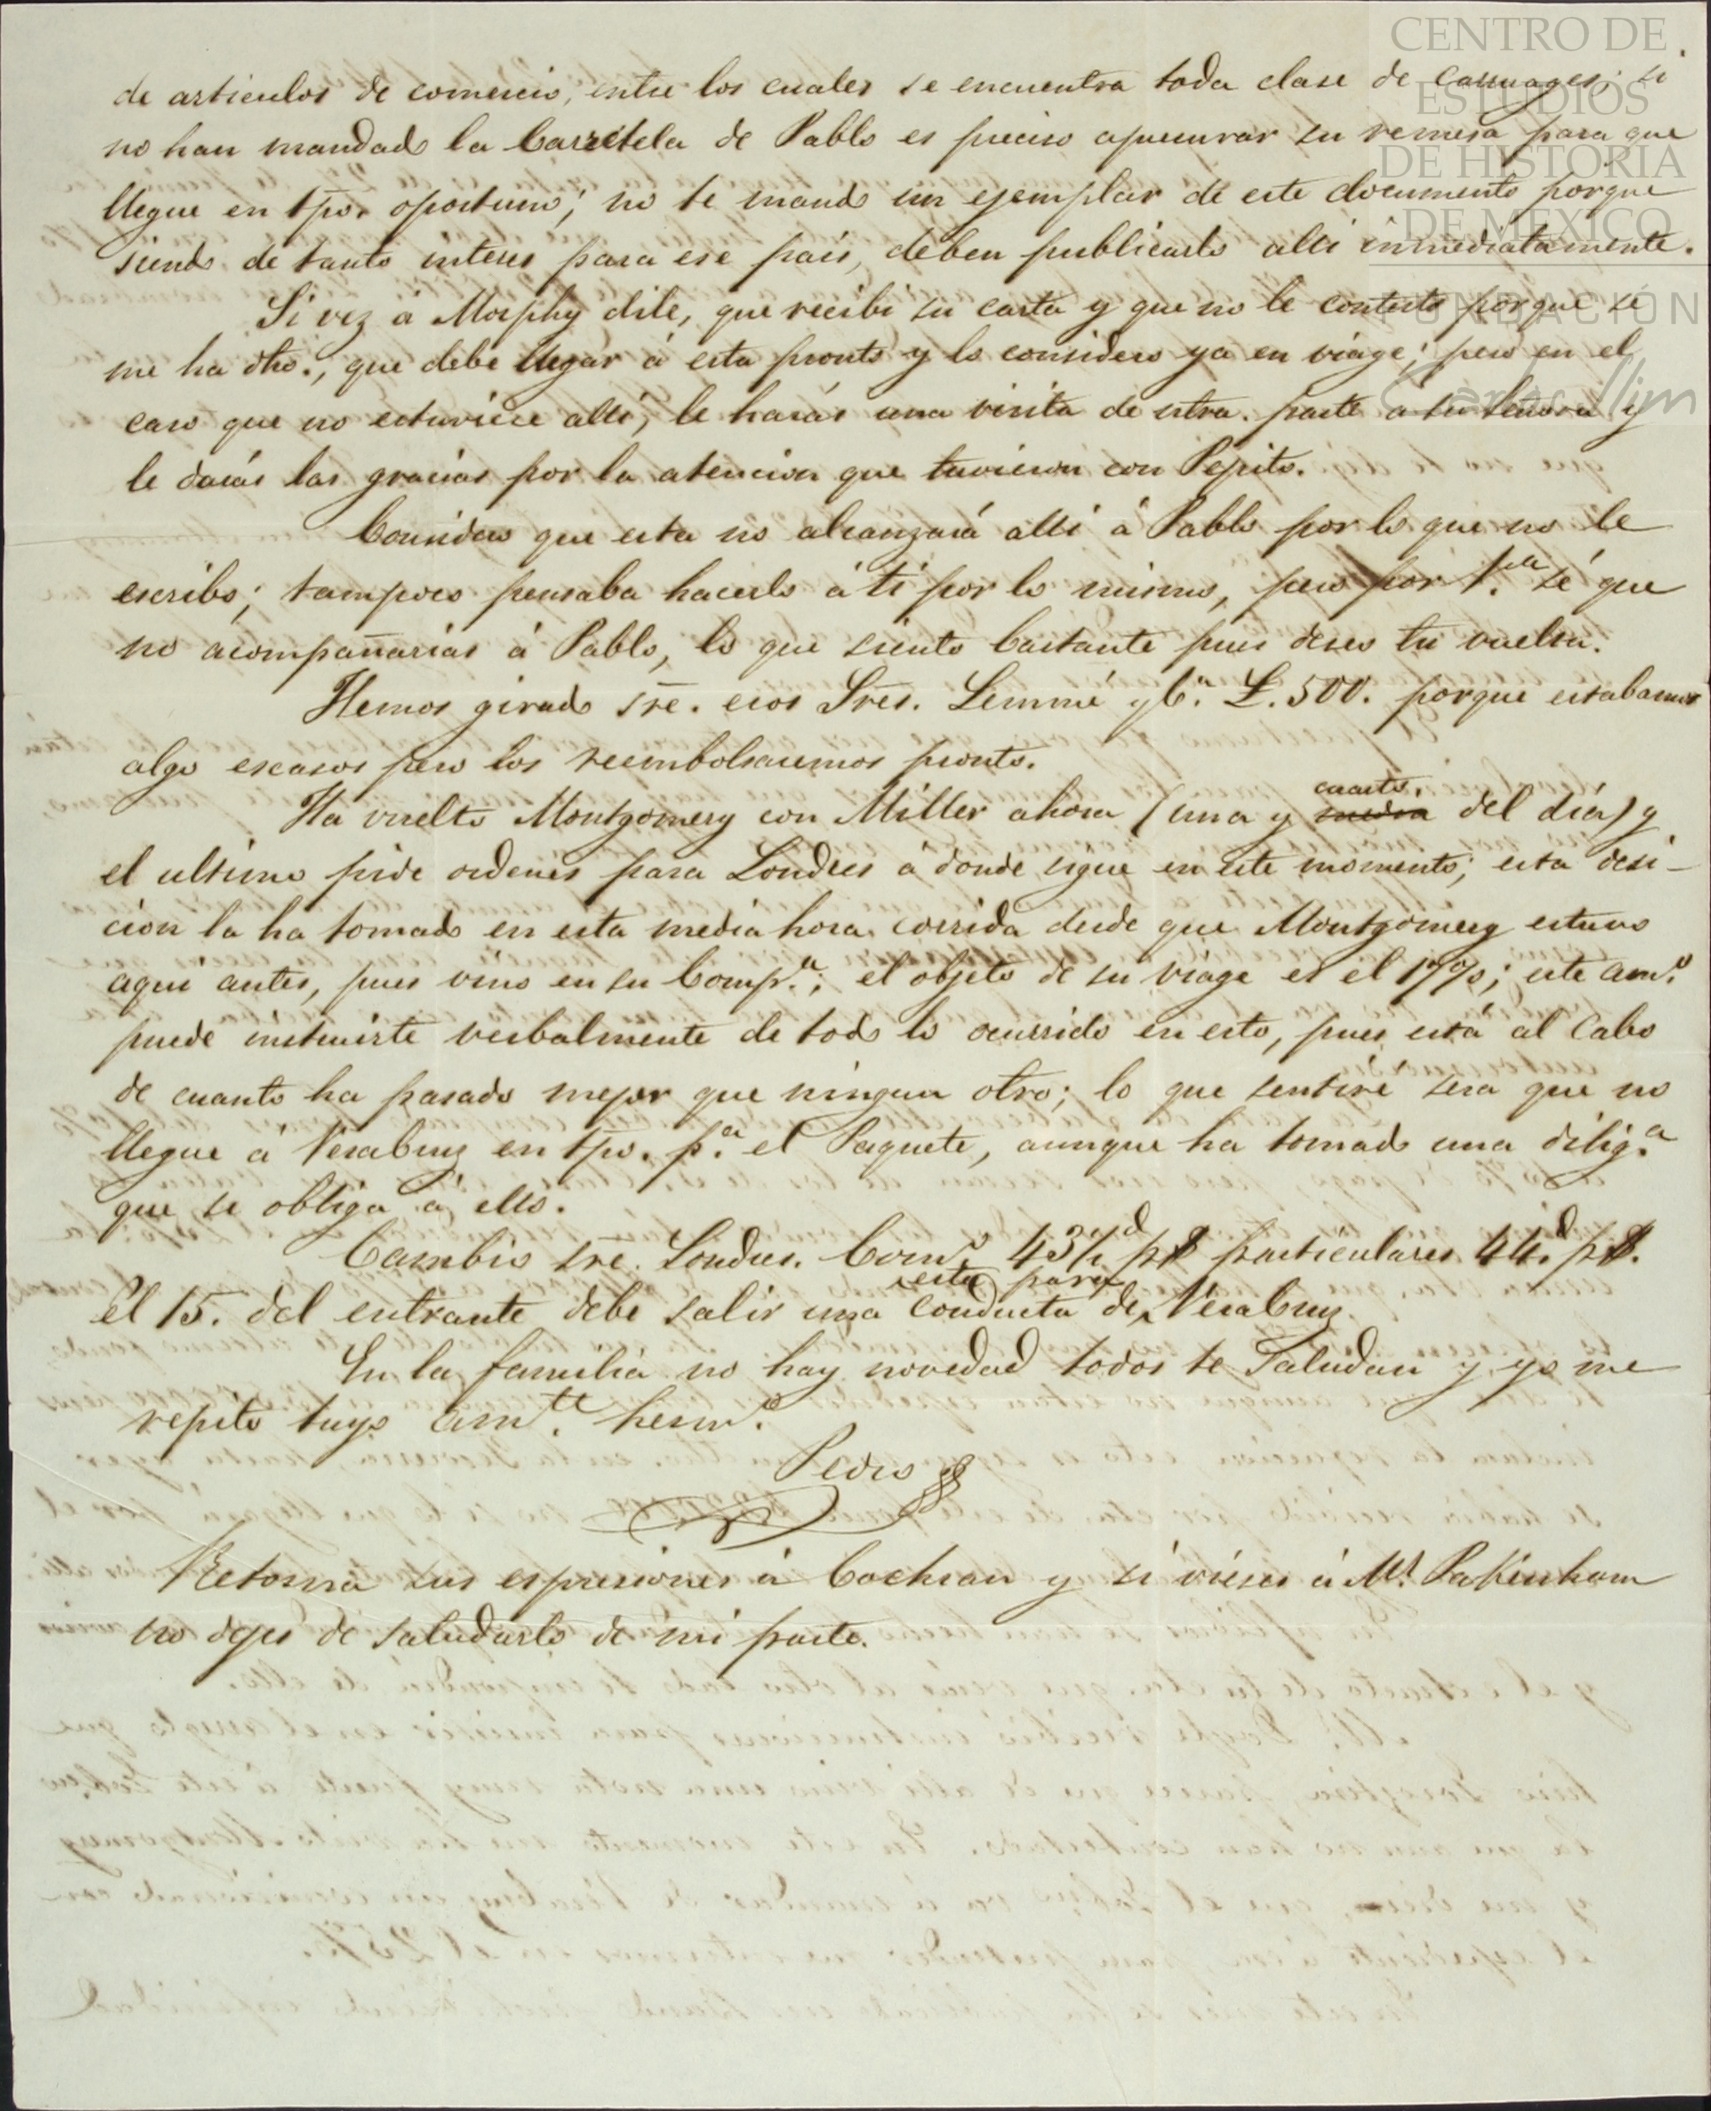 CENTRO DE
ESTUDIOS
DE HISTORIA
DE MEXICO
FUNDACIÓN
Carlos Slim
de articulos de comercio, entre los cuales se encuentra toda clase de carruages; si
no han mandado la Carretela de Pablo es preciso apurar su remesa para que
llegue en tpo. oportuno; no te mando un ejemplar de este documento porque
siendo de tanto interes para ese pais, deben publicarlo alli inmediatamente.
Si vez á Morphy dile, que recibi su carta y que no le contesto porque se
me ha dho., que debe llegar á esta pronto y lo considero ya en viage; pero en el
caso que no estuviece alli, le harás una visita de ntra. parte á su Señora y
le darás las gracias por la atencion que tuvieron con Pepito.
Considero que esta no alcanzará alli á Pablo por lo que no le
escribo; tampoco pensaba hacerlo á ti por lo mismo, pero por t.ª sé que
no acompañarias á Pablo, lo que siento bastante pues deseo tu vuelta.
Hemos girado sre. esos Sres. Lemmé y C.ª £.500. porque estabamos
algo escasos pero los reembolsaremos pronto.
Ha vuelto Montgomery con Miller ahora (una y media cuarto. del día) y
el ultimo pide ordenes para Londres á donde sigue en este momento; esta desi-
cion la ha tomado en esta media hora corrida desde que Montgomery estuvo
aqui antes, pues vino en su Comp.ª; el objeto de su viage es el 17%; este am.º
puede instruirte verbalmente de todo lo ocurrido en esto, pues está al Cabo
de cuanto ha pasado mejor que ningun otro; lo que sentiré sera que no
llegue á VeraCruz en tpo. p.ª el Paquete, aunque ha tomado una dilig.ª
que se obliga á ello.
Cambio sre. Londres. Com.º 43½d p$ particulares 44.d p$.
El 15. del entrante debe salir una conducta de esta para VeraCruz.
En la familia no hay novedad todos te Saludan y yo me
repito tuyo am.te herm.º
Pedro
Retorna sus espresiones á Cochran y si vieses á Mr. Pakenham
no dejes de saludarlo de mi parte.